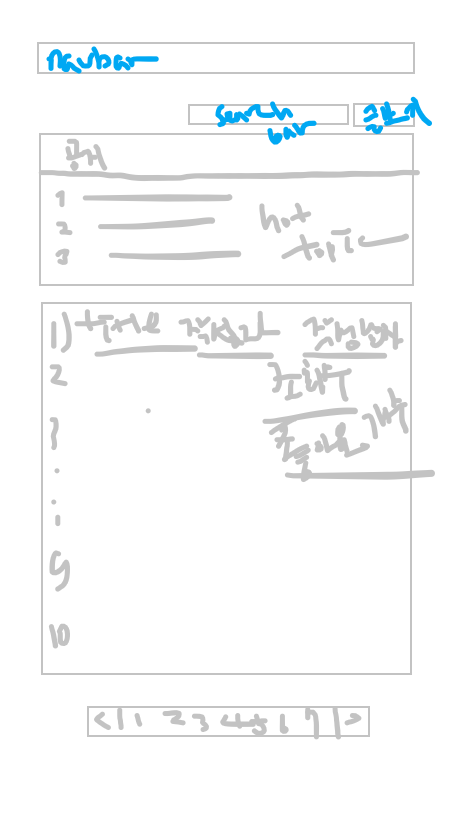 navbar
search
bar
글쓰기
공지
1
2
3
hot
topic
1) 주제목 작성자 작성날짜
2
조회수
3
좋아요 개수
.
.
.
9
10
<| 1 2 3 4 5 6 7 |>